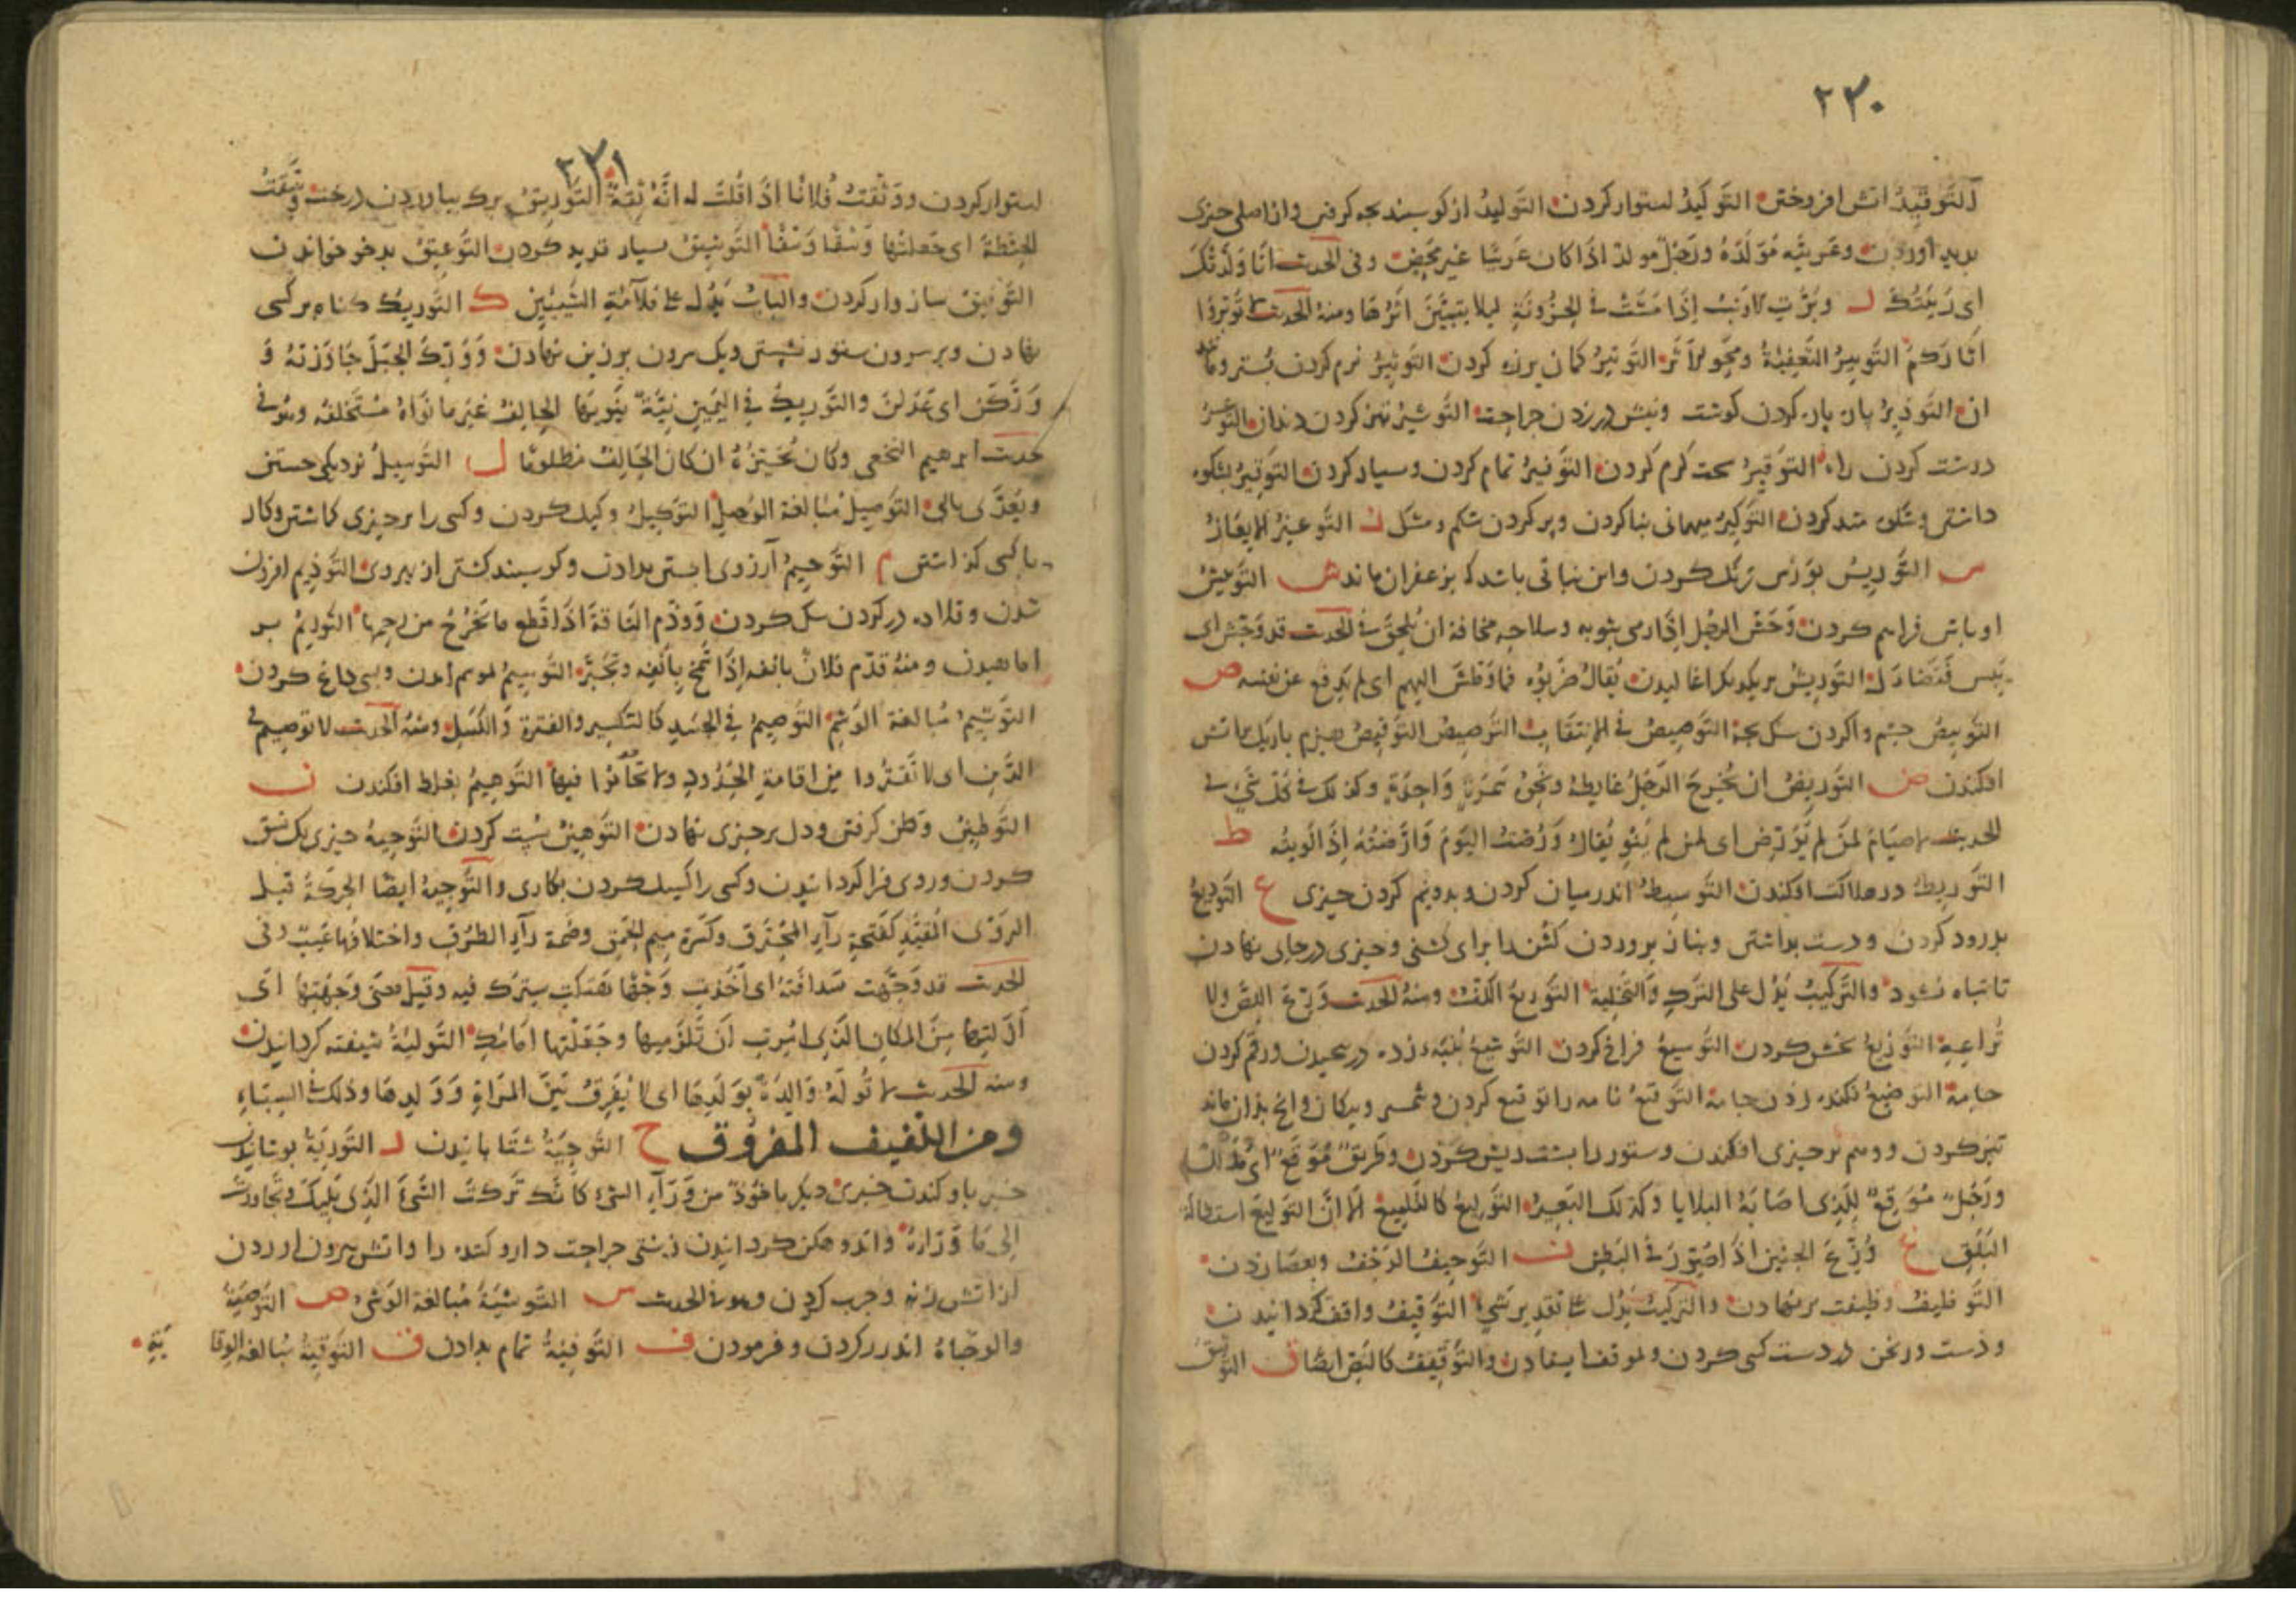 ٢٢٠
التَّوقيدُ اتش افروختن التَّوكيدُ استوار کردن التَّوليدُ از کوسبند بچه کرفتن واز اصلی چیزی
بدید آوردن وعَربيَّه مُوَلَّدَةٌ ورَجُلٌ مولدٌ اذا کان عَربيًّا غَيرَ مَحضٍ وفی الحدیث انا وَلَّدتُكَ
ای رَبَّيتُكَ ر وبَّرَتِ الارنبُ إذا مَشَت فی الحُزُونَةِ لیلا یتبیَّنَ اثرُها ومنهُ الحدیث لا تُوَبِّرُوا
آثارَكم التَّوبيرُ التَّعفِيَةُ ومَحوُ الاَثَر التَّوتيرُ کمان بزه کردن التَّوثيرُ نرم کردن بستر وما
ان التَّوذيرُ پاره پاره کردن کوشت ونیش درزدن جراحت التَّوشيرُ تیز کردن دندان التَّوعيرُ
درشت کردن راه التَّوقيرُ سخت کرم کردن التَّوفيرُ تمام کردن وبسیار کردن التَّوقيرُ بشکوه
داشتن التَّوكيرُ میهمانی بنا کردن وپر کردن شکم ومشک ز التَّوعيزُ الایعازُ
س التَّوريسُ بوَرس رنگ کردن واین نباتی باشد که بزعفران ماند ش التَّوبيشُ
اوباش فراهم کردن وَحَّشَ الرجُلُ اذا رمی بثوبه وسلاحه مخافة ان یُلحَقَ وفی الحدیث قد وَبَّش ای
التَّوريشُ بر یکدیکر اغالیدن یُقالُ ضَرَبُوه فما وَطَّشَ الیهم ای لم یَدفع عن نفسه ص
التَّوبيصُ چشم وا کردن سک بچه التَّوصيصُ فی الانتقاب التَّرصيصُ التَّوقيصُ هیزم باریک بر اتش
افکندن ض التَّوريضُ ان یُخرِجَ الرَّجُلُ غایطهُ ونَجوَهُ بمَرَّةٍ واحِدَةٍ وکذلك فی کل شیء
الحدیث لا صِیامَ لمَن لم یُوَرِّض ای لمَن لم یَنوِ یُقالُ وَرَّضتُ الیَومَ وَارَّضتُهُ اذا نَوَیتُه ط
التَّوريطُ در هلاکت افکندن التَّوسيطُ اندر میان کردن وبدونیم کردن چیزی ع التَّوديعُ
بدرود کردن ودست بداشتن وبناز بروردن کُشن را برای کشنی وچیزی در جای نهادن
تا تباه نشود والتَّرکیبُ یَدُلُّ علی التَّركِ والتَّخلِيَةِ التَّوريعُ الکَفُّ ومنهُ الحدیث وَرِّعِ اللِّصَّ ولا
تُراعِهِ التَّوزيعُ بخش کردن التَّوسيعُ فراخ کردن التَّوشيعُ پنبه زده در پیچیدن ورقم کردن
جامه التَّوضيعُ نکنده زدن جامه التَّوقيعُ نامه را توقیع کردن وشمشیر وپیکان وانچ بذان ماند
تیز کردن ووهم بر چیزی افکندن وستور را پشت ریش کردن وطریقٌ مُوَقَّعٌ ای مُذَلَّلٌ
ورَجُلٌ مُوَقَّعٌ للَّذی اصابَتهُ البلایا وکذلك البَعيرُ التَّوليعُ کالتَّلميعِ الَّا انَّ التَّوليعَ استطالَة
البَلَقِ غ وُزِّغَ الجنینُ اذا صُوِّرَ فی البَطنِ ف التَّوحيفُ الوَحفُ وبعصا زدن
التَّوظيفُ وظیفت بر نهادن والتَّرکیبُ یَدُلُّ علی تقدیر شیءٍ التَّوقيفُ واقف کردانیدن
ودست ورنجن در دست کسی کردن وبموقف ایستادن والتَّوقيفُ کالنَّصِّ ایضًا ق التوثيق
٢٢١
استوار کردن ووَثَّقتُ فُلانًا اذا قُلتَ له انَّهُ ثِقَةٌ التَّوريقُ برک بیاوردن درخت وَسَّقتُ
الحِنطَةَ ای جَعلتُها وَسقًا وَسقًا التَّوشيقُ بسیار قدید کردن التَّوعيقُ بدخو خواندن
التَّوفيقُ سازوار کردن والبابُ یَدُلُّ علی مُلآمَةِ الشَّیئَینِ ك التَّوريكُ کناه بر کسی
نهادن وبر سرون ستور نشستن ویک سرون بر زین نهادن ووَرَّكَ الجَبَلَ جاوَزَهُ وَ
وَرَّکنَ ای عَدَلنَ والتَّوريكُ فی الیَمینِ نِیَّةٌ یَنویها الحالِفُ غیرَ ما نَواهُ مُستَحلِفُه وهو فی
حدیث ابرهیم النخعی وکان یُجیزُهُ ان کان الحالِفُ مظلومًا ل التَّوسيلُ نزدیکی جستن
ویُعَدَّی بالی التَّوصيلُ مُبالغة الوَصلِ التَّوكيلُ وکیل کردن وکسی را بر چیزی کماشتن وکار
با کسی کذاشتن م التَّوحيمُ آرزوی آبستن بدادن وکوسبند کشتن از بهر وی التَّوذيمُ افزون
شدن وقلاده در کردن سک کردن ووَذَّم النَّاقةَ اذا قَطَعَ ما یَخرُجُ من رحِمِها التَّوريمُ بر
اماهیدن ومنهُ قد وَرَّم فلانٌ بانفه إذا شَمَخَ بِانفِه وتَجَبَّر التَّوسيمُ بموسم آمدن وبسی داغ کردن
التَّوشيمُ مُبالغة الوَشم التَّوصيمُ فی الجَسَدِ کالتکسیر والفترة والکَسَلِ ومنهُ الحدیث لا توصیم فی
الدّین ای لا تَفتُروا فی اقامةِ الحُدُودِ ولا تُحابُوا فیها التَّوهيمُ بغلط افکندن ن
التَّوطينُ وطن کرفتن ودل بر چیزی نهادن التَّوهينُ سست کردن التَّوجيهُ چیزی بک نسق
کردن وروی فرا کردانیدن وکسی را کسیل کردن بکاری والتَّوجيهُ ایضًا الحرکةُ قبل
الرَّوِیِّ المُقَیَّدِ کفَتحَةِ رآءِ المُختَرَق وکَسرَةِ میم الحَمِق وضَمَّة رآءِ الطُرُق واختلافُها عَیبٌ وفی
الحدیث قد وَجَّهتِ سَدافَتَهُ ای اخَذتِ وَجهًا هَتَکتِ سِترَكِ فیه وقیل معنی وَجَّهتِها ای
اَزَلتِها مِنَ المکانِ الَّذی اُمِرتِ اَن تَلزَمیها وجَعَلتِها اَمامَكِ التَّولِيَةُ شیفته کردانیدن
ومنه الحدیث لا تُوَلَّهُ والِدَةٌ بِوَلَدِها ای لا یُفَرَّقُ بَینَ المَرأةِ ووَلَدِها وذلك فی السِّباءِ
ومن اللفیف المفروق ح التَّوحِيَةُ شتابانیدن ر التَّورِيَةُ پوشانیدن
خبر باوکندن خبری دیکر ماخُوذٌ من وَرآءِ الشیء کانَّكَ تَرَکتَ الشَّیءَ الَّذی یَلیكَ وتجاوَزتَ
إلی ما وَرَاءَهُ واندوهکن کردانیدن زشتی جراحت دارو کننده را واتش بیرون آوردن
از اتش زنه وچرب کردن وهو فی الحدیث س التَّوشِيَةُ مُبالغة الوَشیِ ص التَّوصِيَةُ
والوصَاةُ اندرز کردن وفرمودن ف التَّوفِيَةُ تمام بدادن ق التَّوقِيَةُ مُبالغة الوقایَةِ